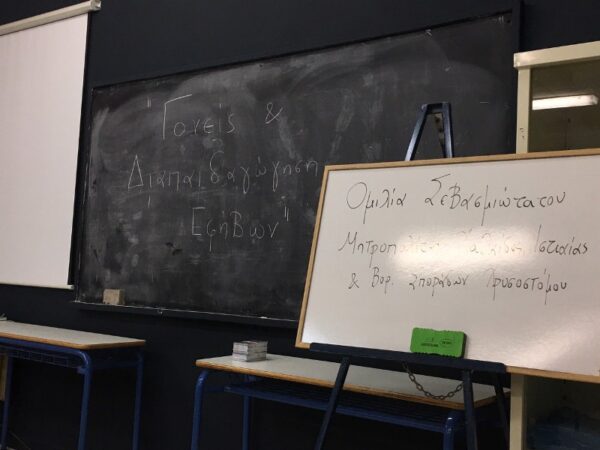 "Γονείς &
Διαπαιδαγώγηση
Εφήβων"
Ομιλία Σεβασμιώτατου
Μητροπολίτη Χαλκίδος, Ιστιαίας
& Βορ. Σποράδων Χρυσοστόμου